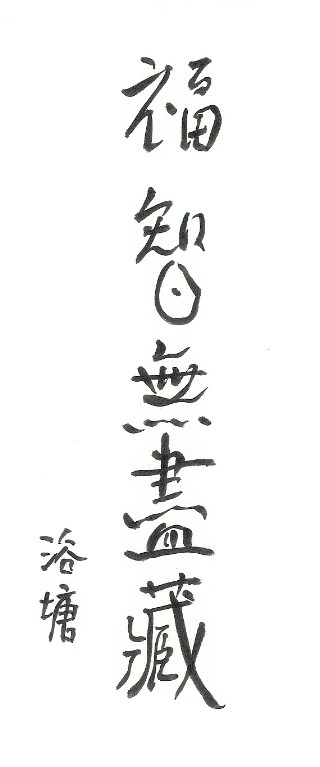 福智無盡藏
浴塘